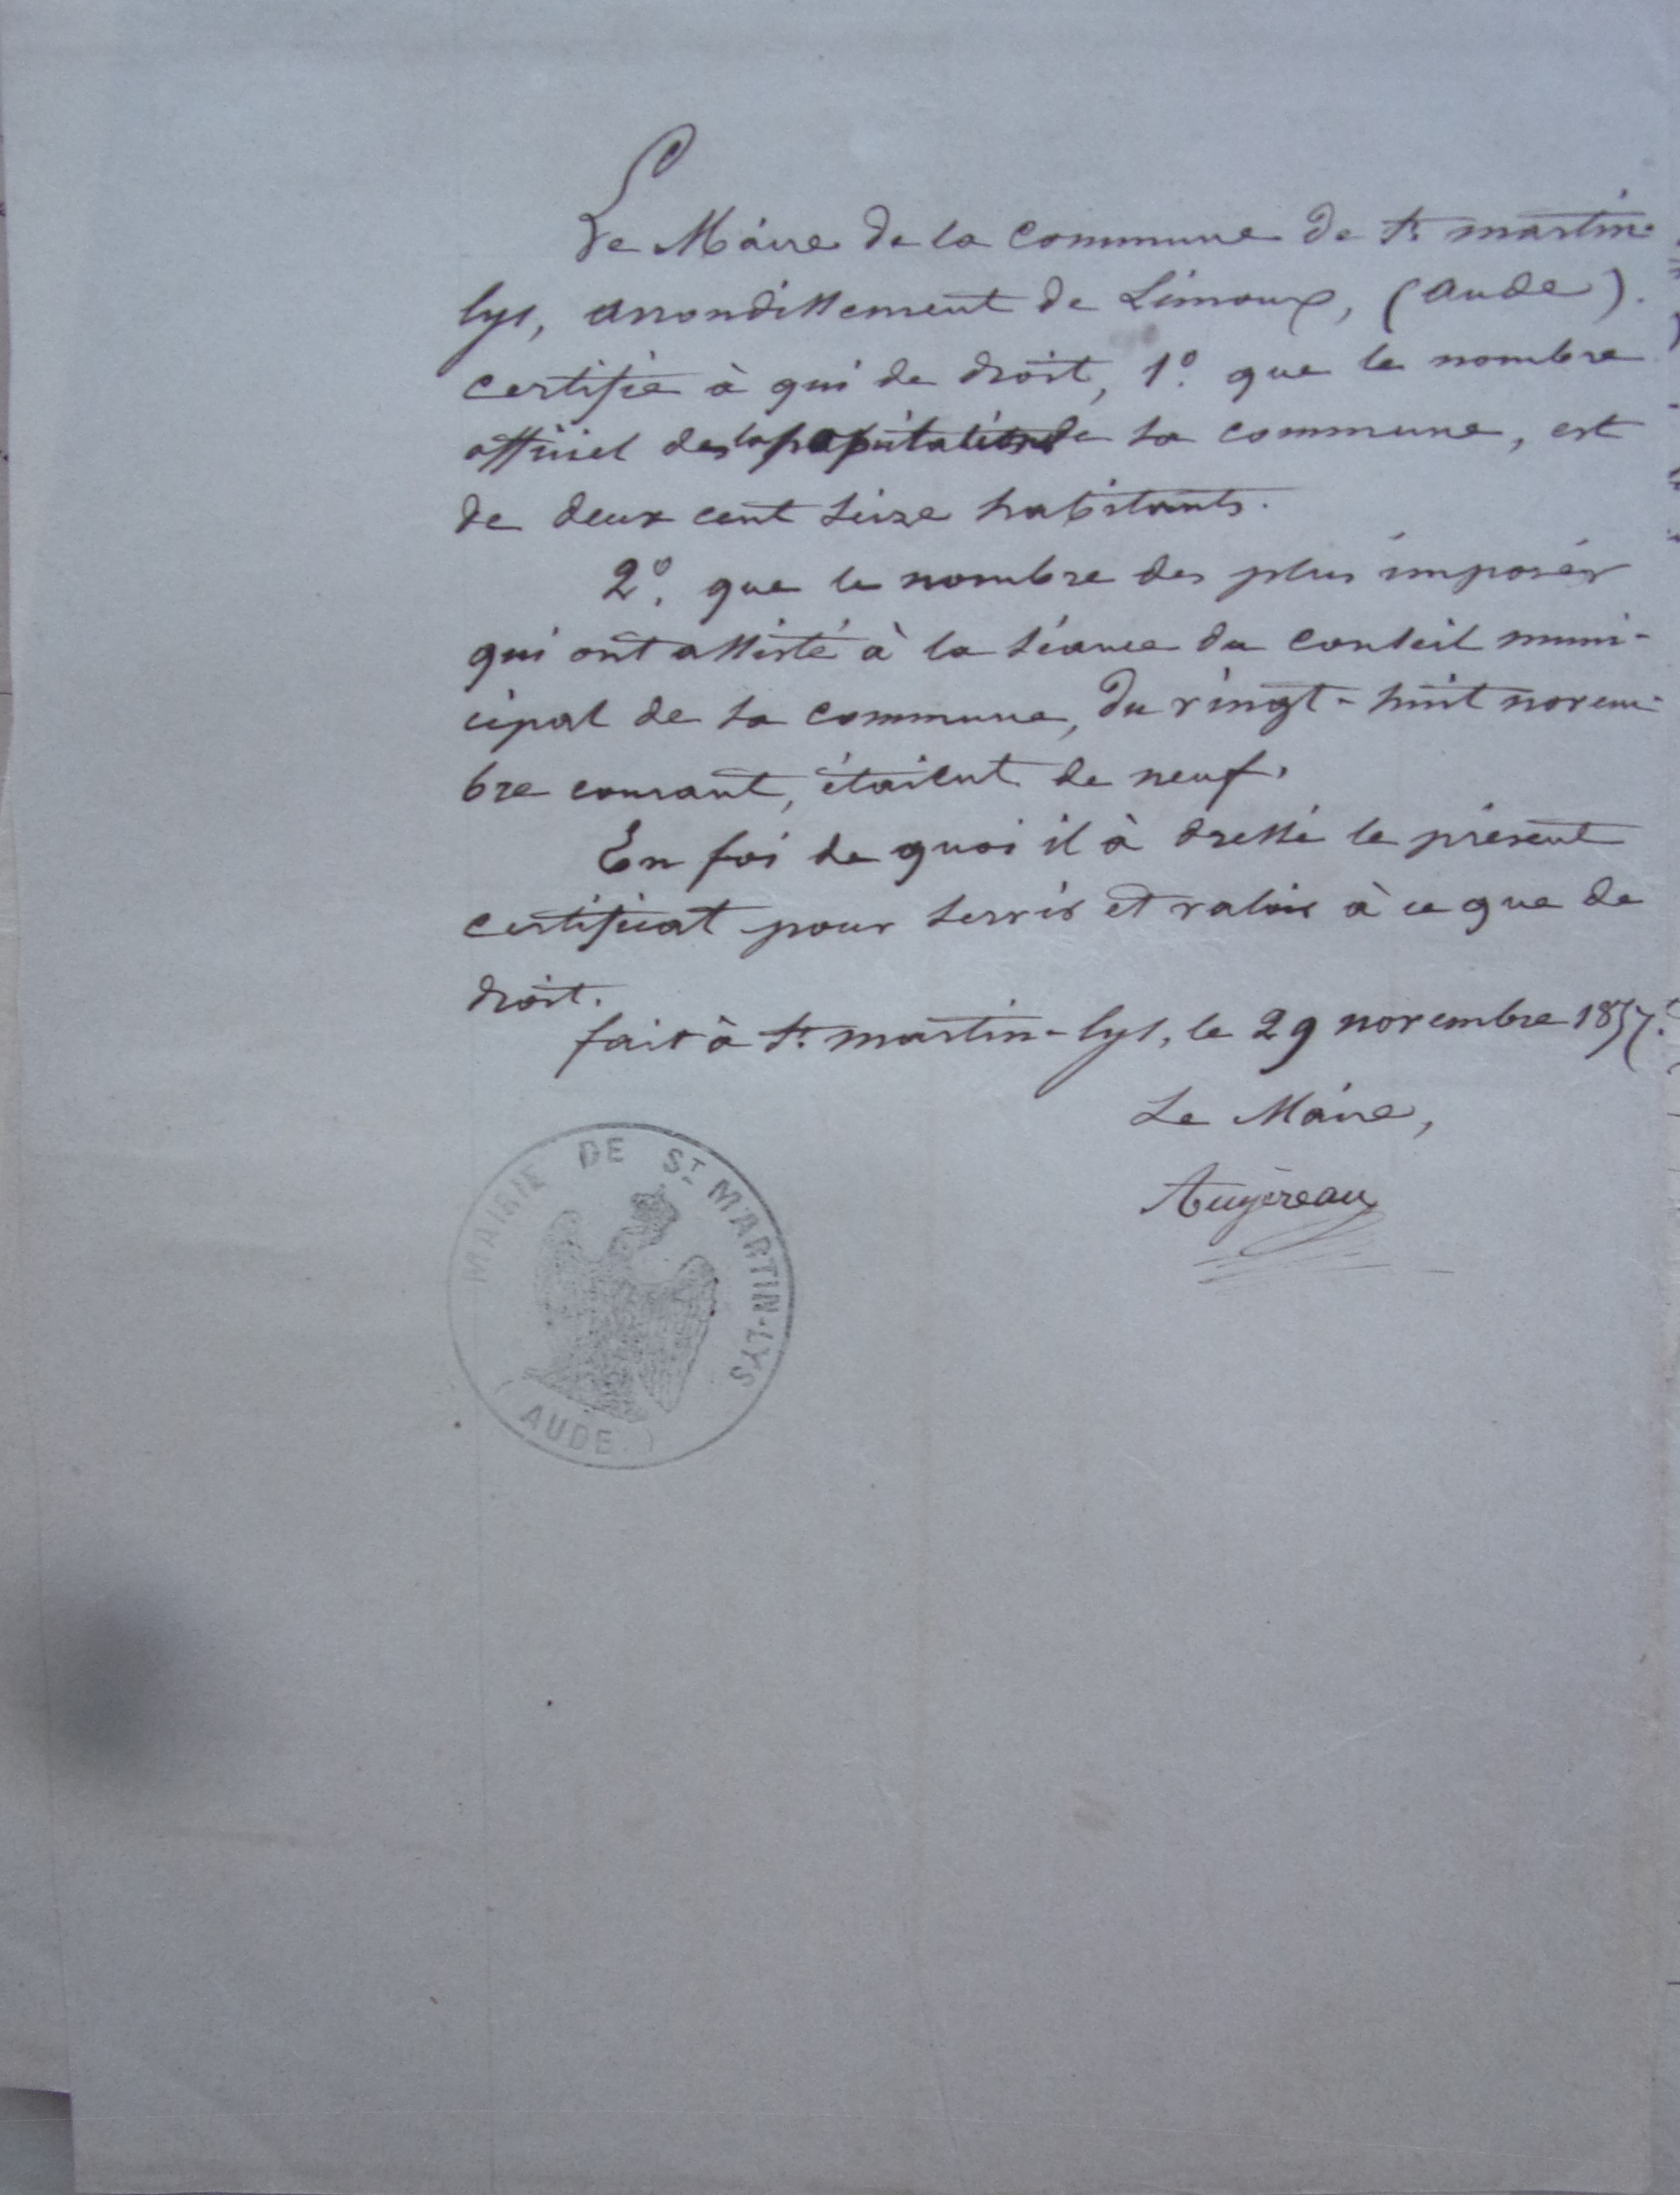 Le Maire de la commune de St. martin-
lys, arrondissement de Limoux, (aude).
certifie à qui de droit, 1º. que le nombre
officiel de la population de sa commune, est
de deux cent seize habitants.
2º. que le nombre des plus imposés
qui ont assisté à la séance du conseil muni-
cipal de sa commune, du vingt-huit novem-
bre courant, étaient de neuf.
En foi de quoi il à dressé le présent
certificat pour servir et valoir à ce que de
droit.
fait à St. martin-lys, le 29 novembre 1857.
Le Maire,
Augereau
MAIRIE DE ST MARTIN-LYS
(AUDE)